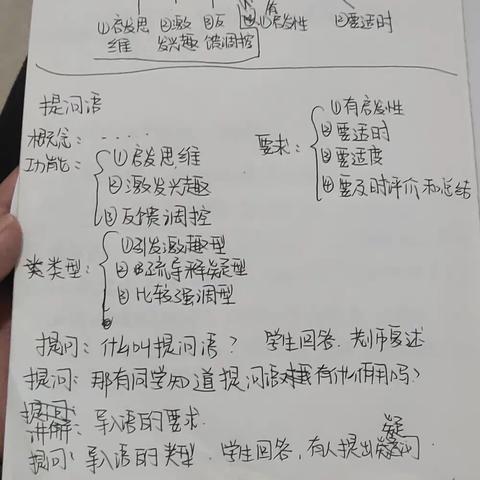 ①启发思维 ②激发兴趣 ③反馈调控 ①启发性 ②要适时
提问语
概念：····
功能：①启发思维
②激发兴趣
③反馈调控
要求：①有启发性
②要适时
③要适度
④要及时评价和总结
类型：①引发激趣型
②疏导释疑型
③比较强调型
提问：什么叫提问语？ 学生回答．老师复述
提问：那有同学知道提问语有什么作用吗？
讲解：导入语的要求．
提问：导入语的类型．学生回答，有人提出疑问．